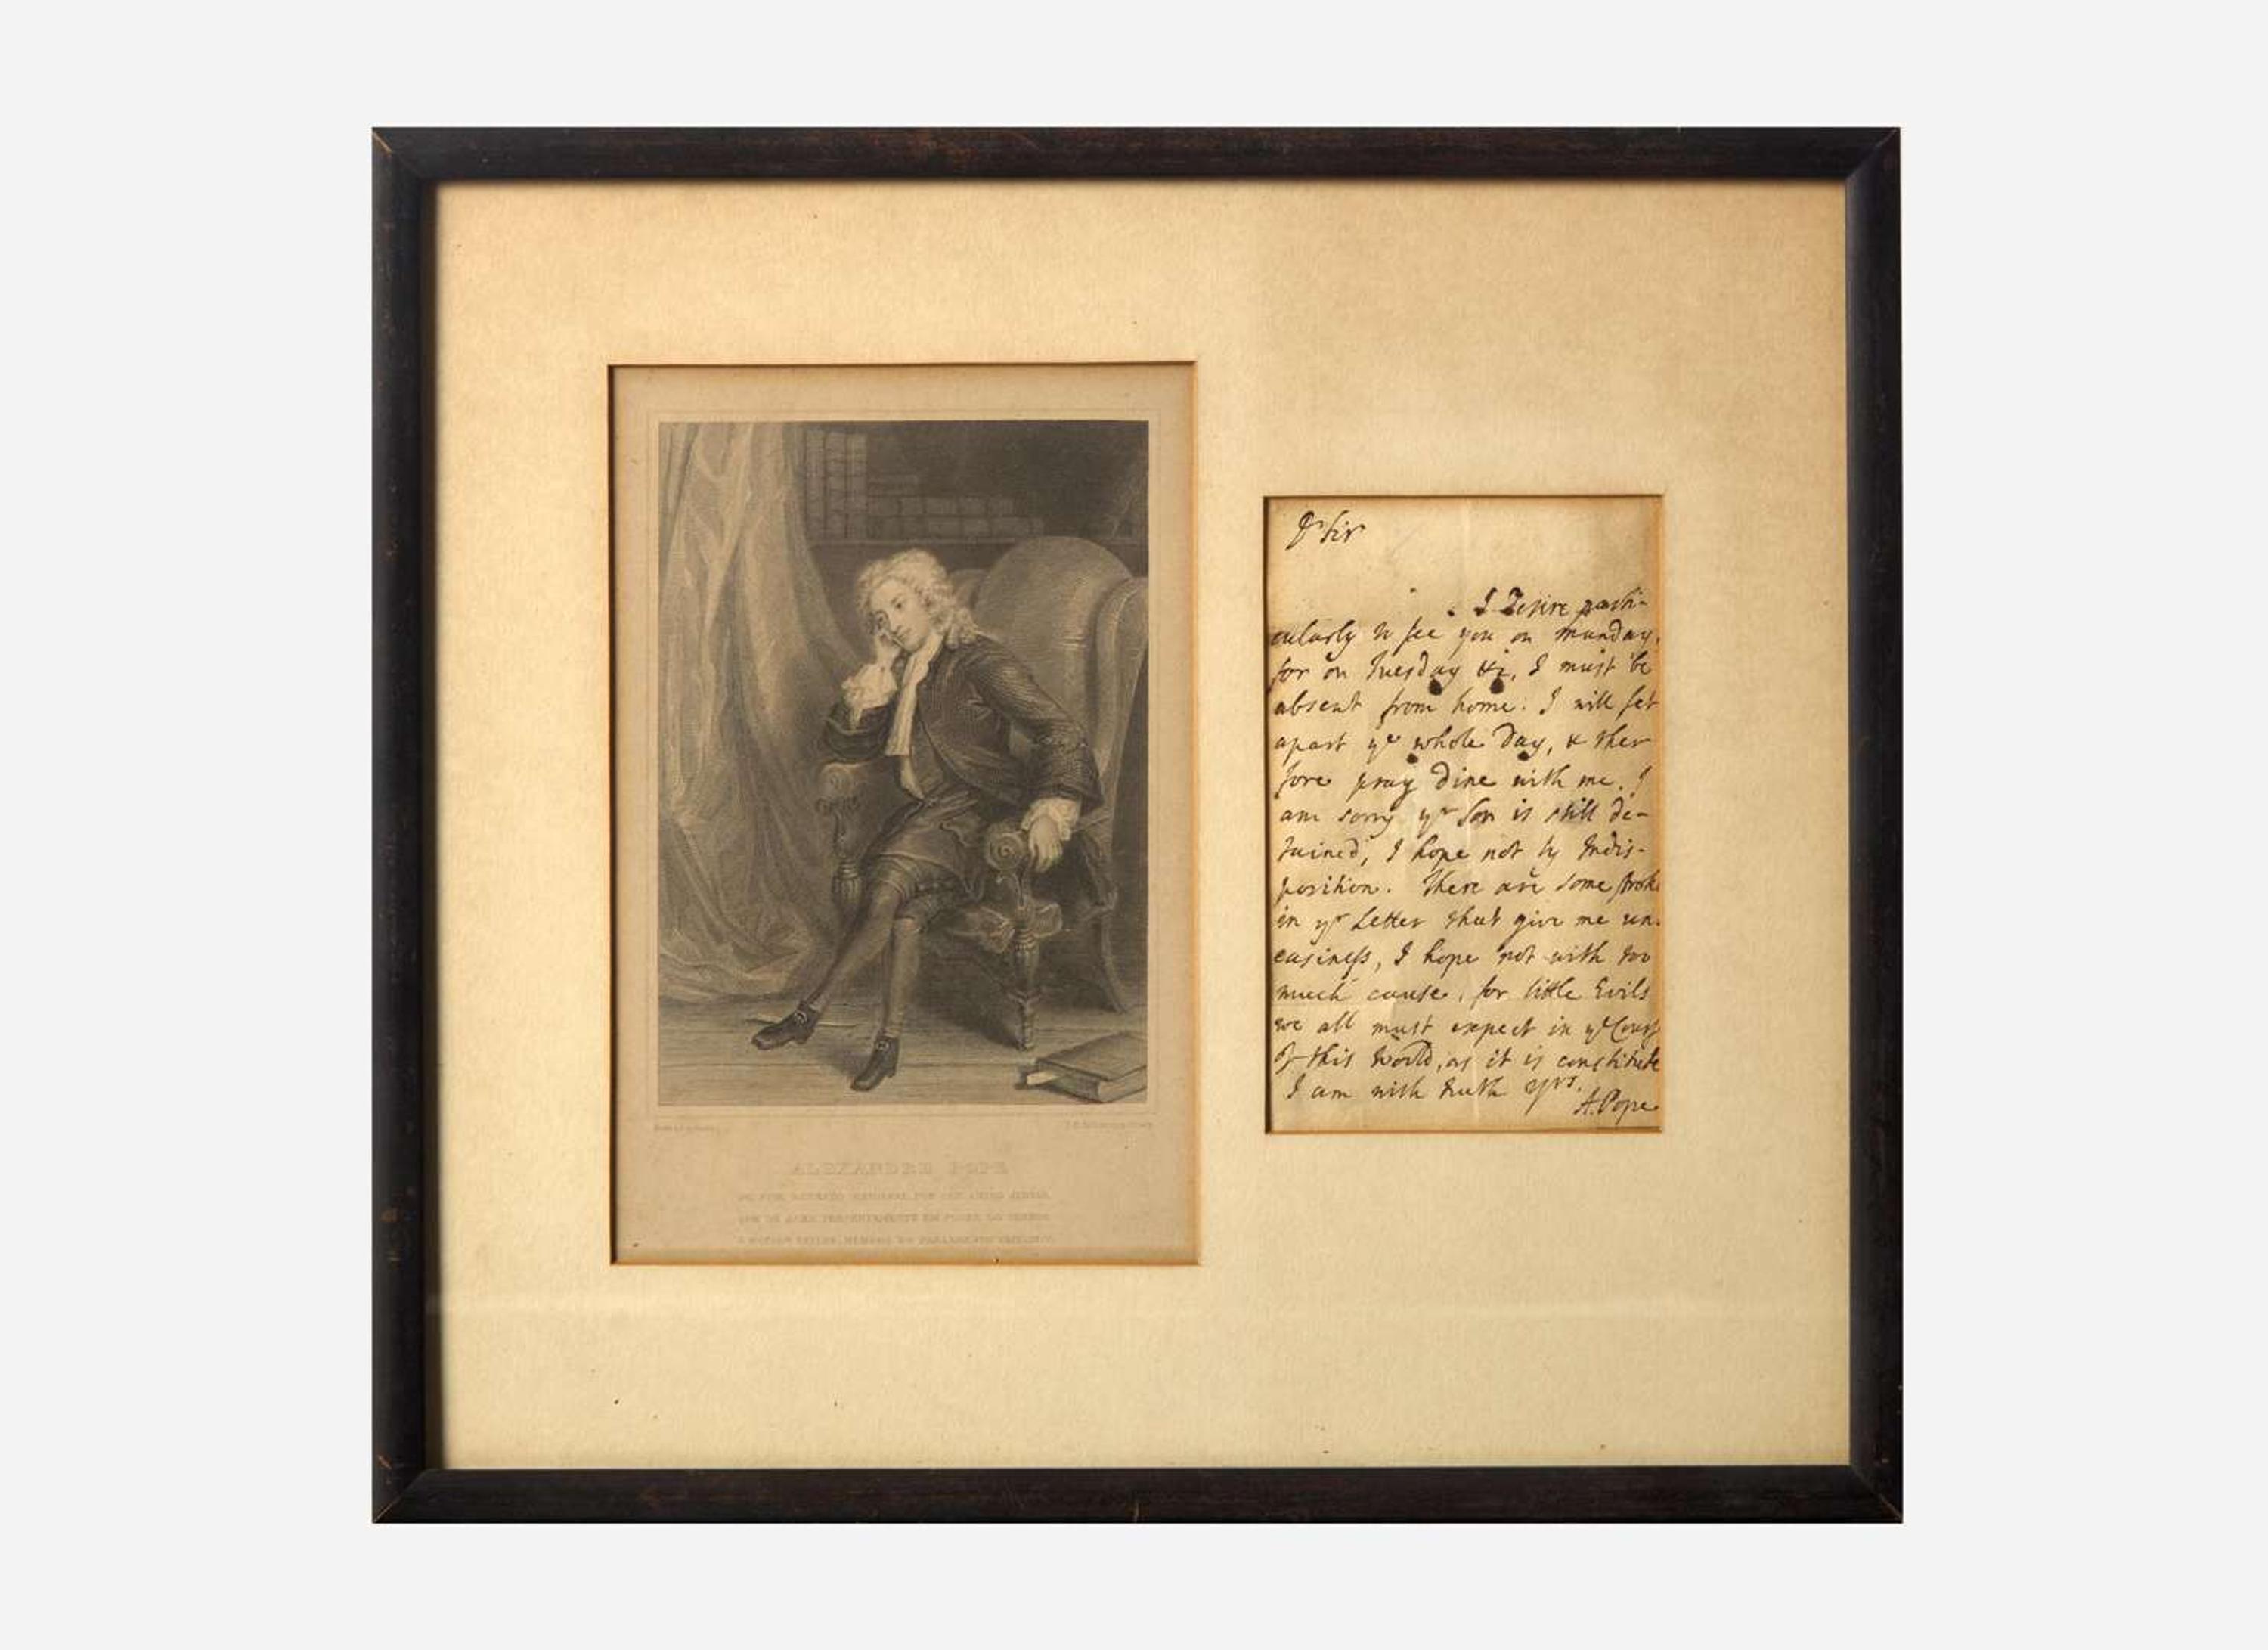 ALEXANDRE POPE
Dr Sir
I Desire parti-
cularly to see you on munday,
for on Tuesday &c, I must be
absent from home: I will set
apart ye whole Day, & ther
fore pray dine with me. I
am sorry yr Son is still de-
tained, I hope not by Indis-
position. There are some
in yr Letter that give me un-
easiness, I hope not with too
much cause, for little Evils
we all must expect in ye Cours
of this World, as it is constitute
I am with truth yrs.
A. Pope